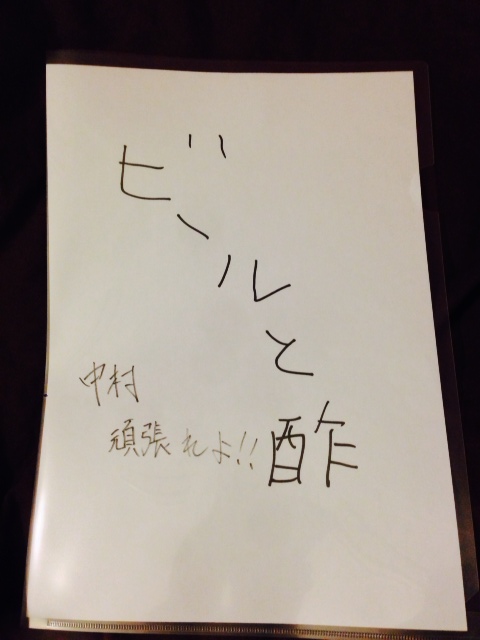 ビールと酢
中村
頑張れよ!!